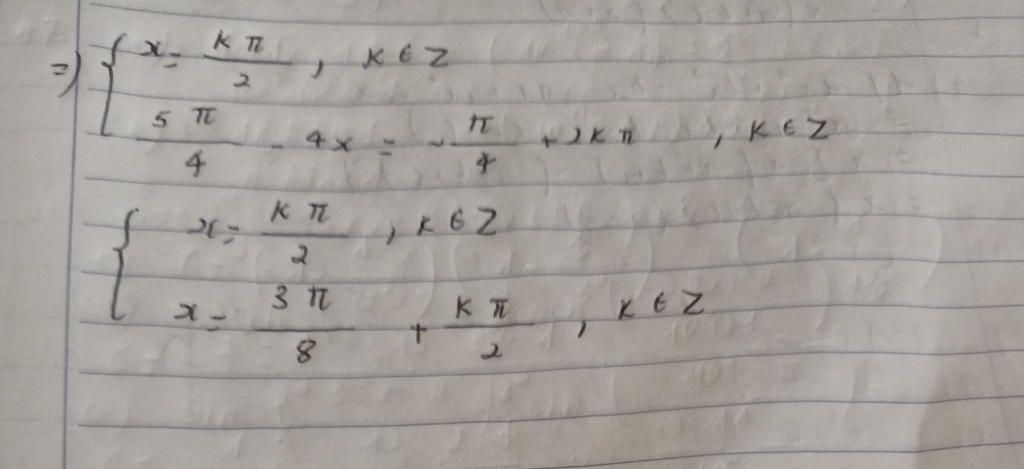 ⇒ { x = kπ/2 , k ∈ Z
5π/4 - 4x = -π/4 + 2kπ , k ∈ Z
{ x = kπ/2 , k ∈ Z
x = 3π/8 + kπ/2 , k ∈ Z